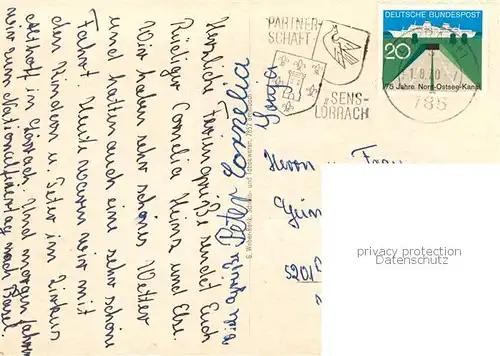 Herzliche Feriengrüße sendet Euch
Rüdiger Cornelia Heinz und Else.
Wir haben sehr schönes Wetter
und hatten auch eine sehr schöne
Fahrt. Heute waren wir mit
den Kindern u. Peter im Zirkus
Althoff in Lörrach. Und morgen fahren
wir zum Nationalfeiertag nach Basel.
Viele Grüße Peter Cornelia
PARTNER-
SCHAFT
SENS-
LÖRRACH
DEUTSCHE BUNDESPOST
20
75 Jahre Nord-Ostsee-Kanal
785
Herrn u. Frau
5201
privacy protection